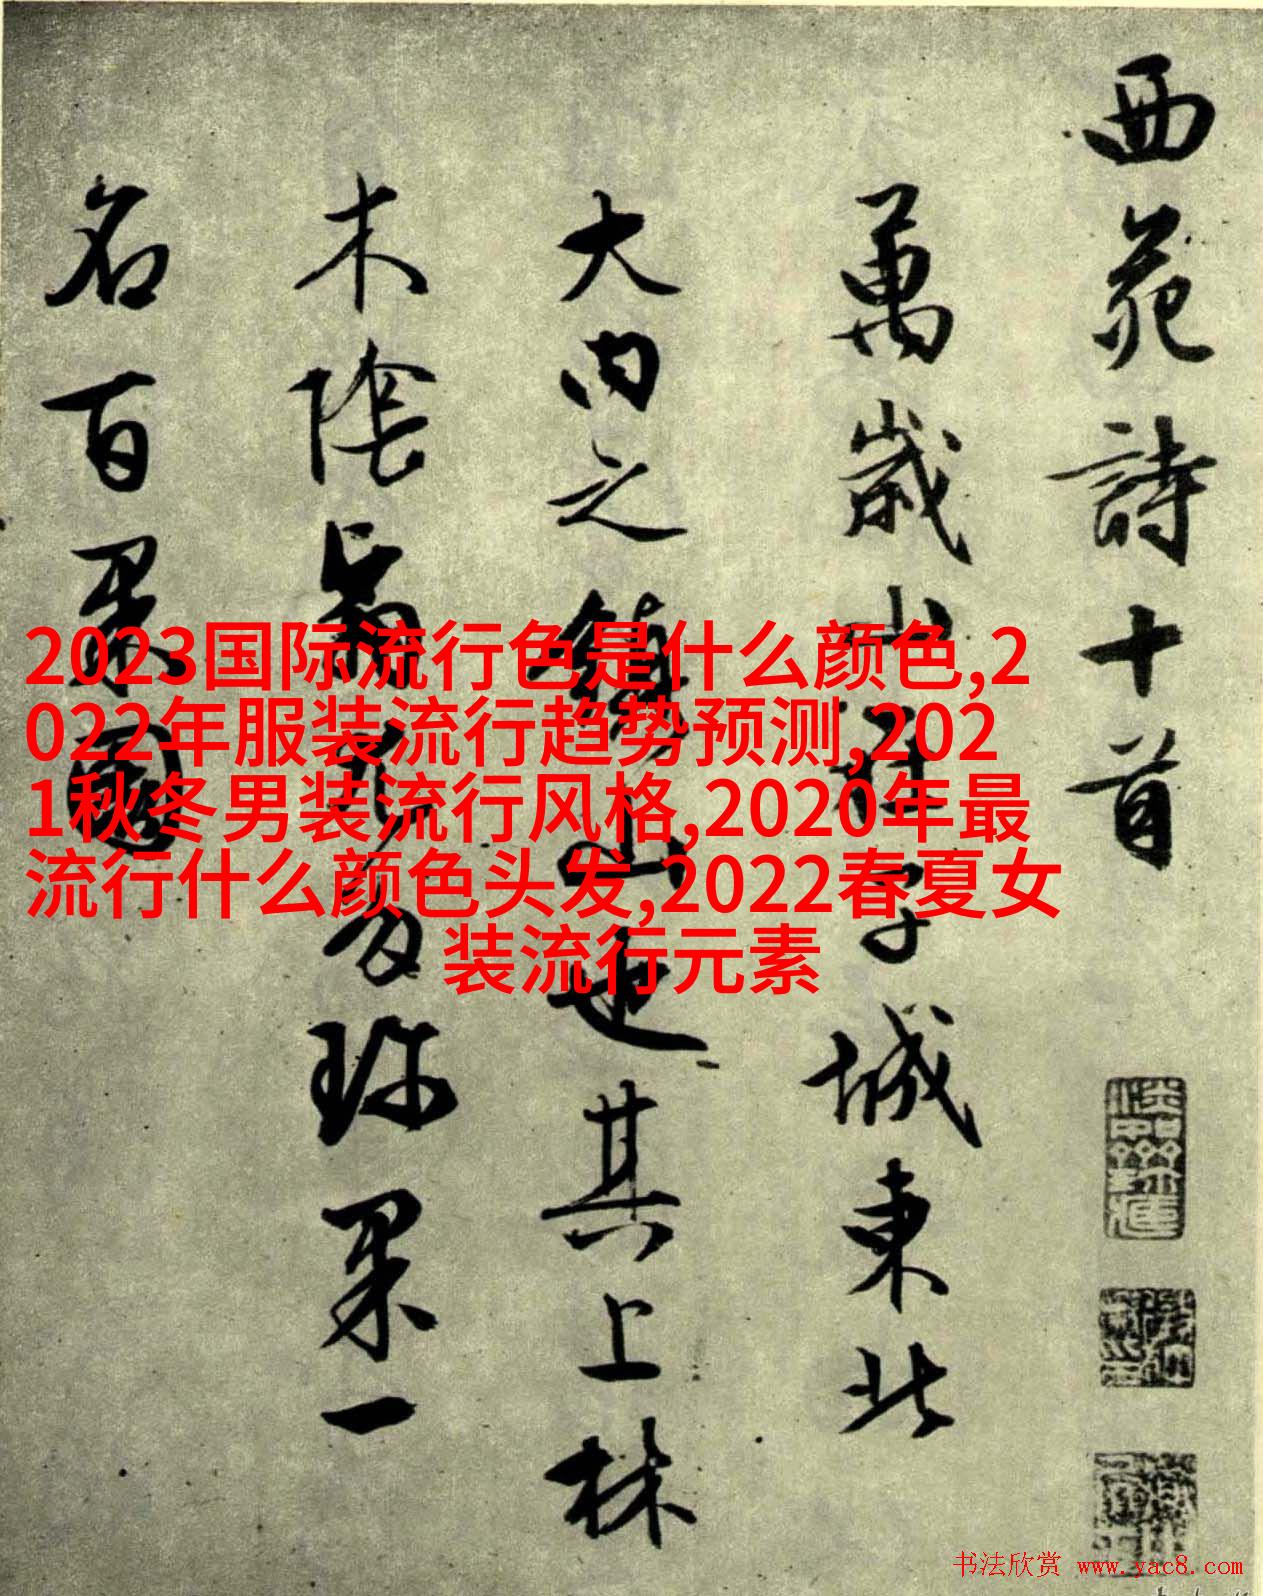 西苑詩十首
萬歲山在子城東北
大内之鎮山也其上林
木陰翳尤多珍果一
名百果園
2023国际流行色是什么颜色,2
022年服装流行趋势预测,202
1秋冬男装流行风格,2020年最
流行什么颜色头发,2022春夏女
装流行元素
书法欣赏 www.yac8.com